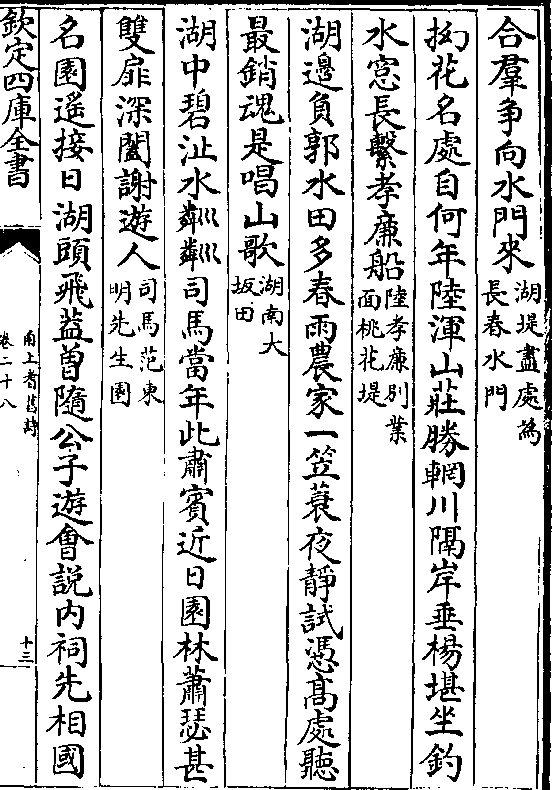 合羣争向水門来湖堤盡處為長春水門
拗花名處自何年陸渾山莊勝輞川隔岸垂楊堪坐釣
水窓長繫孝廉船陸孝廉别業面桃花堤
湖邉負郭水田多春雨農家一笠蓑夜静試憑髙處聽
最銷魂是唱山歌湖南大坂田
湖中碧沚水粼粼司馬當年此肅賓近日園林蕭瑟甚
雙扉深闔謝遊人司馬范東明先生園
名園遥接日湖頭飛葢曽隨公子遊㑹説内祠先相國
欽定四庫全書
甬上耆舊詩
卷二十八
十三